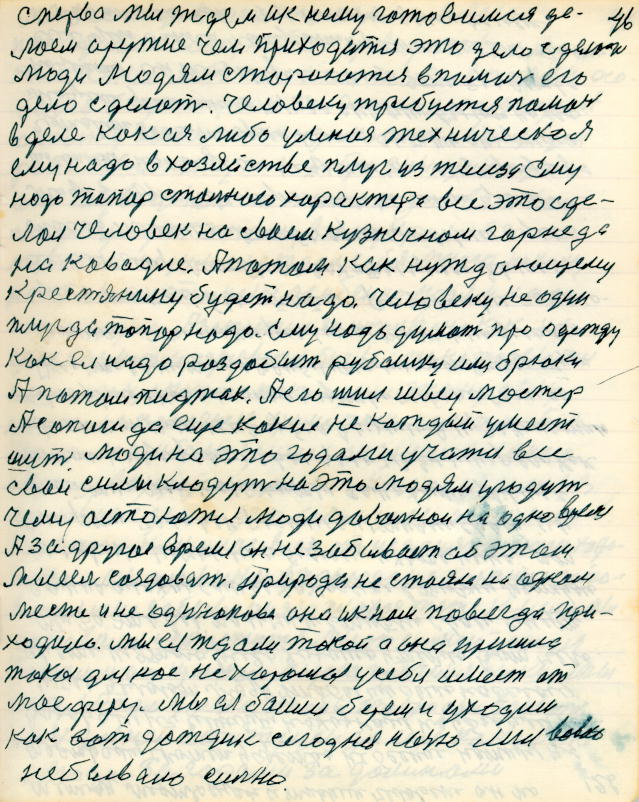 сперва мы ждем и к нему готовимся де- 46
лаем оружие чем приходится это дело сделать
люди людям стараются в помоч его
дело сделат. Человеку требуется помоч
в деле какая либо умная техническая
ему надо в хозяйстве плуг из железа ему
надо топор стального характера все это сде-
лал человек на своем кузнечном горне да
на ковадле. А потом как нуждающему
крестянину будет надо. Человеку не один
плуг да топор надо. Ему надо думат про одежду
как ел надо раздобыт рубашку или брюки
А потом пиджак. А его шил швец мастер
А сапоги да еще какие не каждый умеет
шит люди на это годами учатся все
свои силы кладут на это людям угодит
чему остаются люди довольной на одно время
А за другое время он не забывает об этом
мыслея создоват. Природа не стояла на одном
месте и не одинакова она и к нам повсегда при-
ходила. мы ел ждали такой а она пришла
такая для нас не хорошая у себя имеет ат
масферу. мы ел баимся берем и уходим
как вот дождик сегодня ночю лил вовсю
небывало силно.